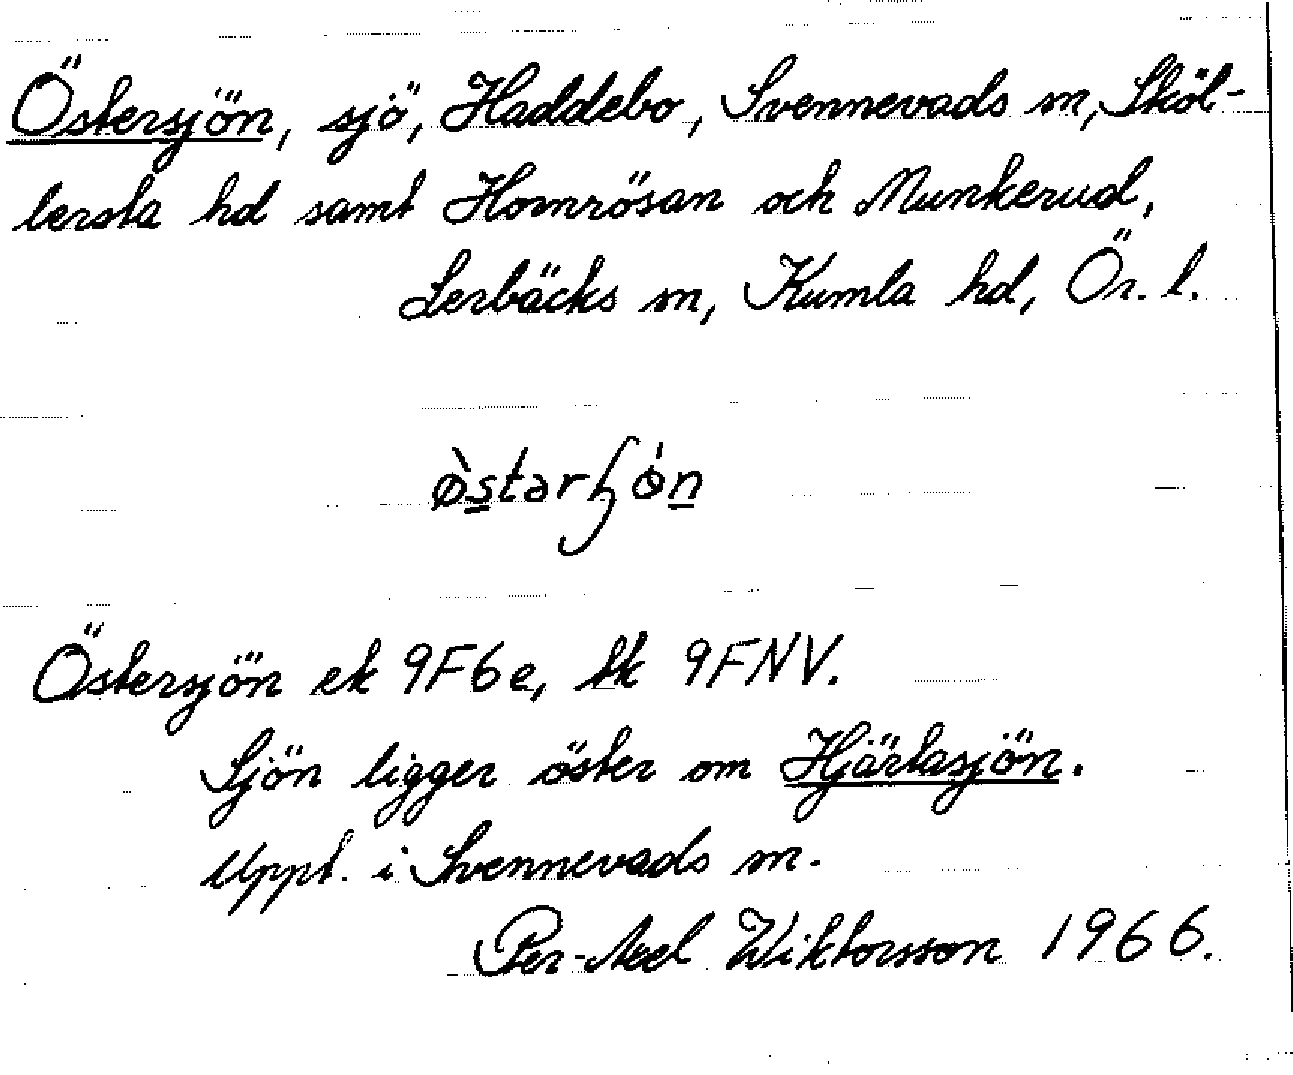 Östersjön, sjö, Haddebo, Svennevads sn, Sköl-
lersta hd samt Homrösan och Munkerud,
Lerbäcks sn, Kumla hd, Ör. l.
Östersjön ek 9F6e, tk 9FNV.
Sjön ligger öster om Hjärtasjön.
Uppt. i Svennevads sn.
Per-Axel Wiktorsson 1966.